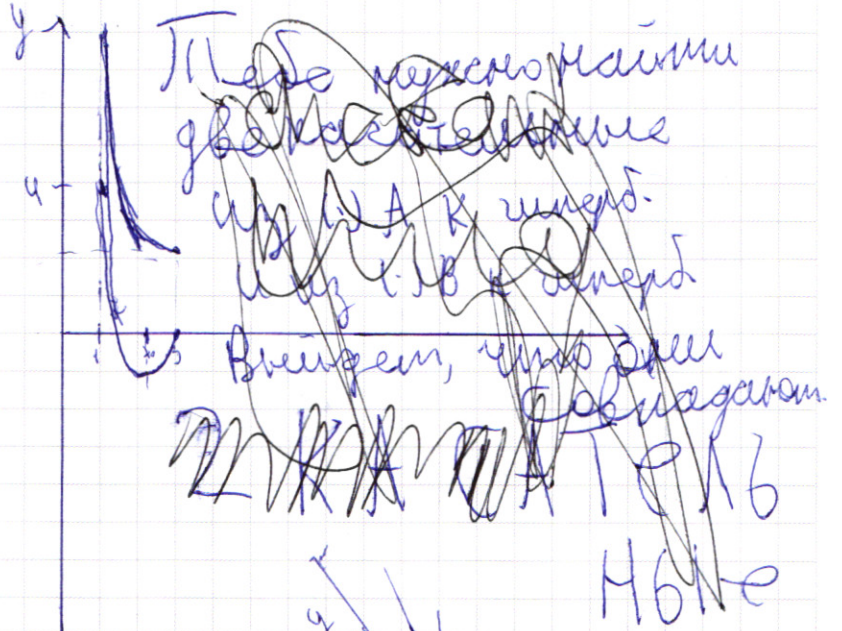 y
Тебе нужно найти
две касательные
4
из (·) A к гиперб.
и из (·) B к гиперб
Выйдет, что они
совпадают.
2 КАСАТЕЛЬ
НЫЕ